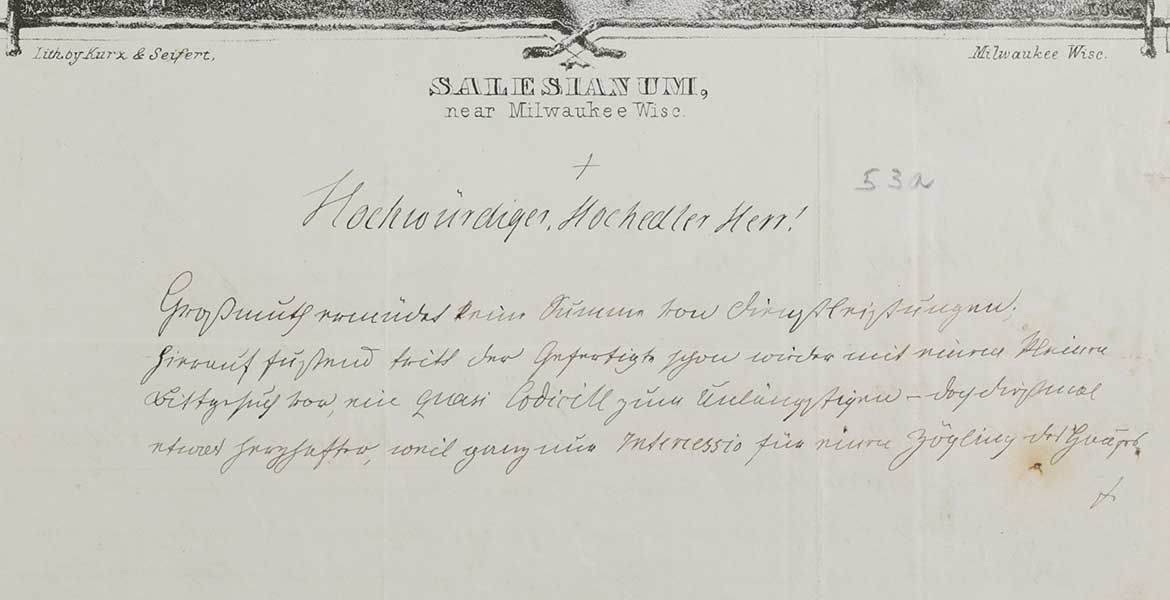 Lith. by Kurz & Seifert,
Milwaukee Wisc.
SALESIANUM,
near Milwaukee Wisc.
+
53a
Hochwürdiger, Hochedler Herr!
Großmuth ermüdet keine Summe von Dienstleistungen;
hierauf fußend tritt der Gefertigte schon wieder mit einem kleinen
Bittgesuch vor, ein quasi Codicill zum Unlängstigen – doch dießmal
etwas herzhafter, weil ganz nur Intercessio für einen Zögling des Hauses.